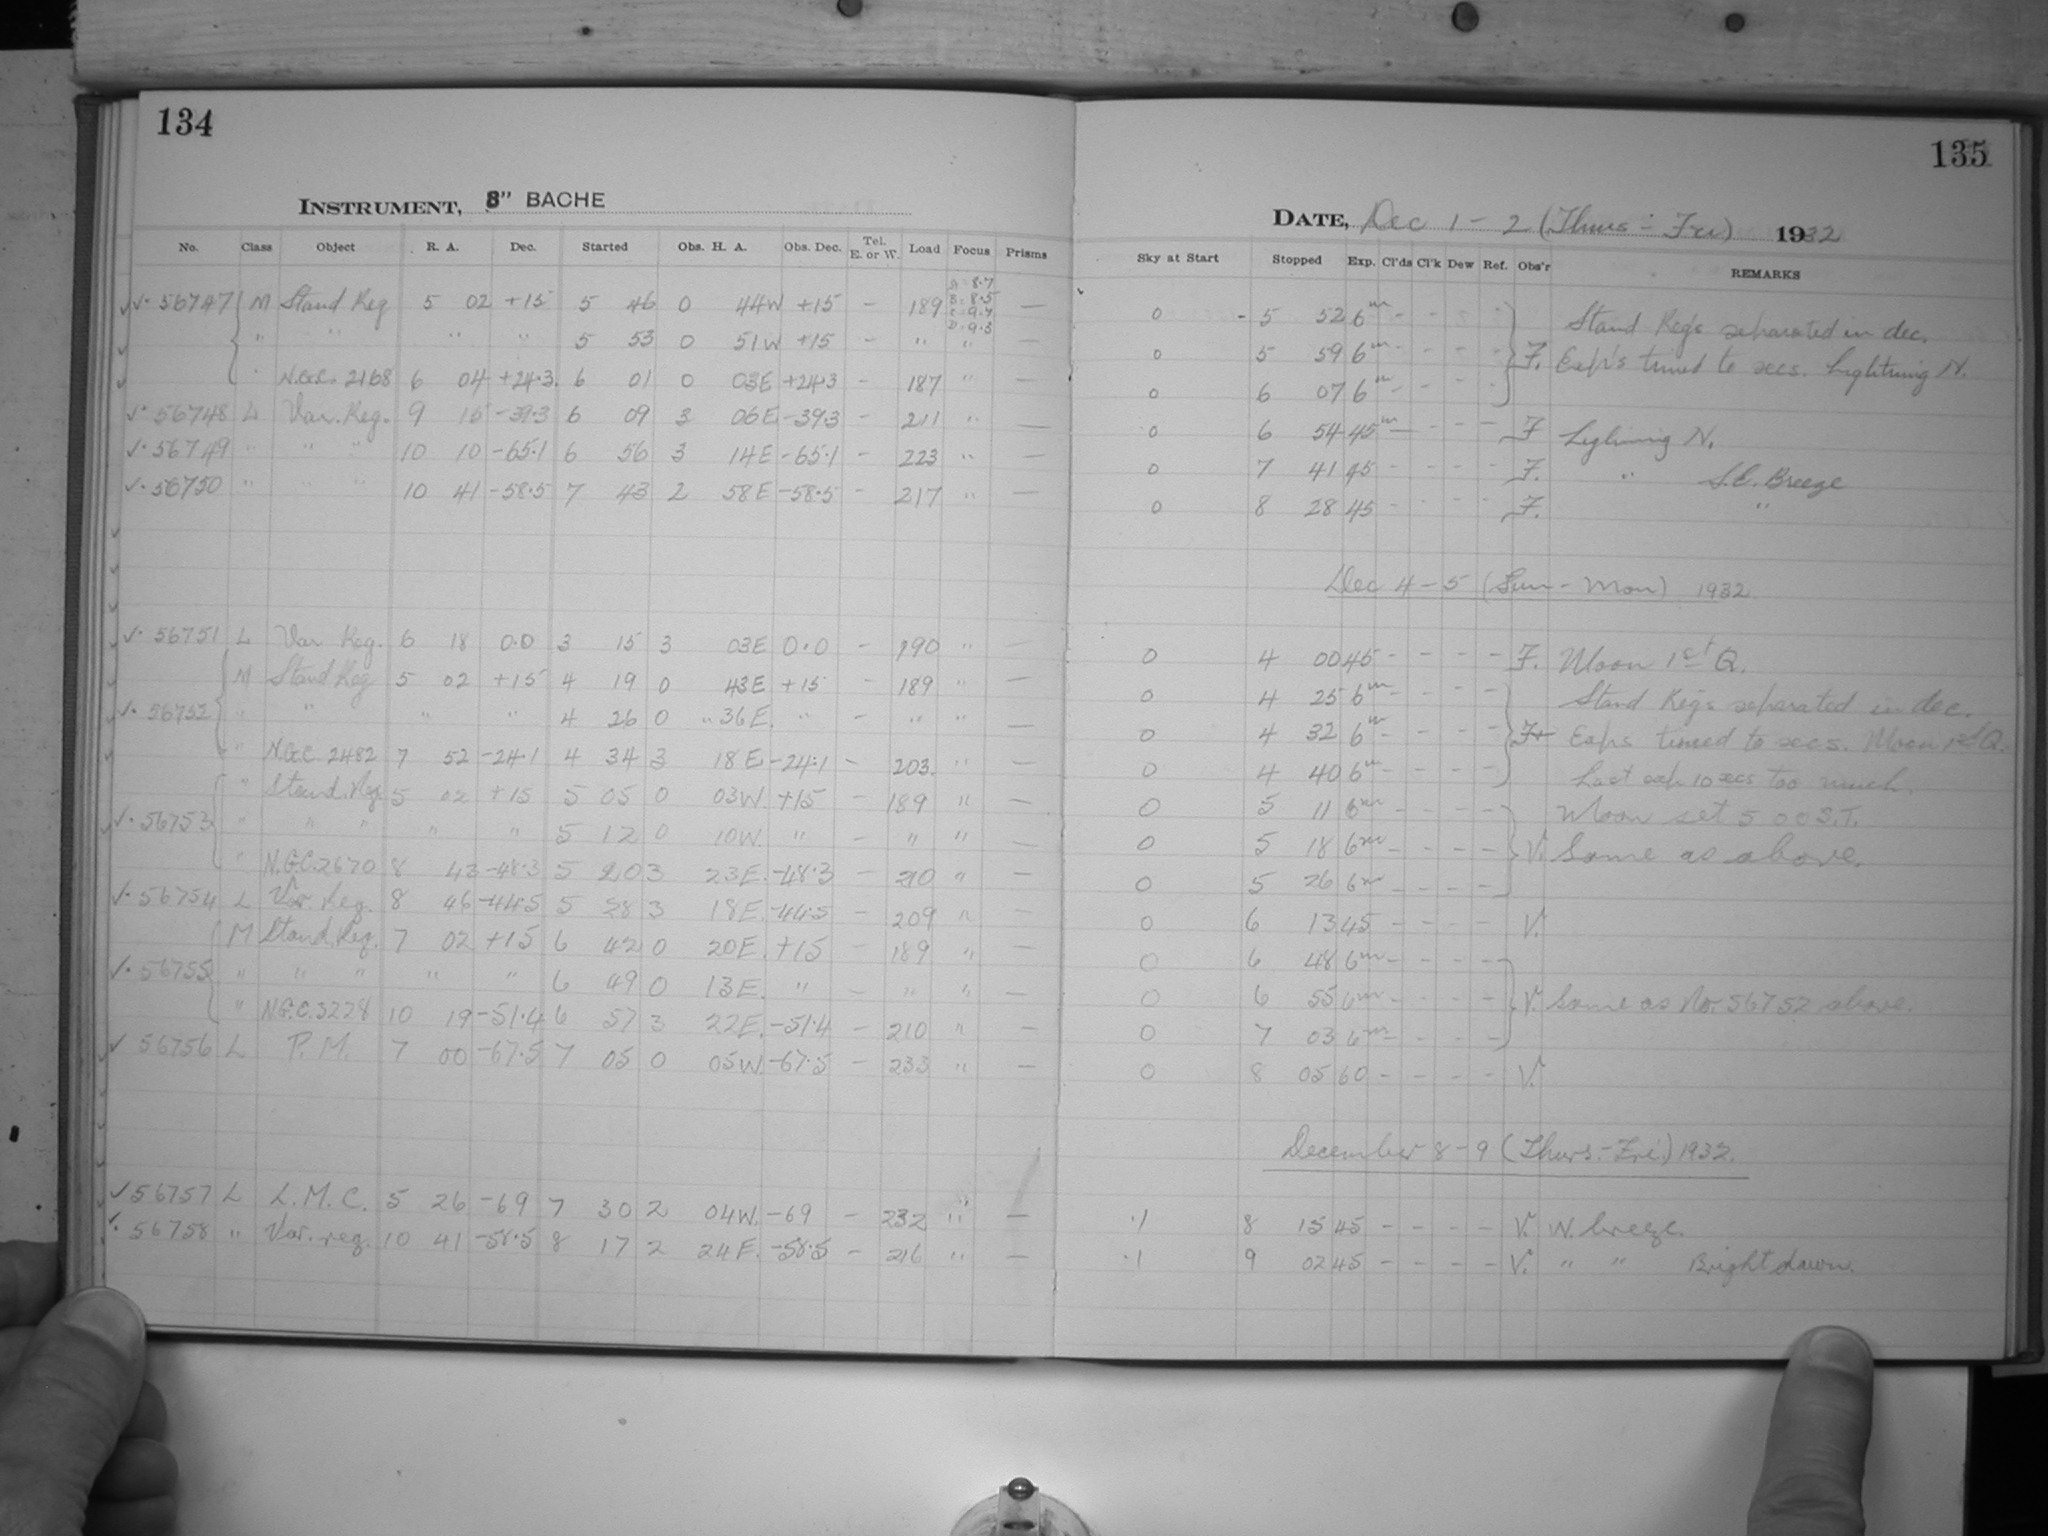 134
INSTRUMENT, 8" BACHE
No. Class Object R. A. Dec. Started Obs. H. A. Obs. Dec. Tel. E. or W. Load Focus Prisms
A: 8.7
56747 M Stand Reg 5 02 +15 5 46 0 44W +15 - 189 B: 8.5 —
C: 9.7
D: 9.3
" " " " 5 53 0 51W +15 - " " —
" N.G.C. 2168 6 04 +24.3 6 01 0 03E +24.3 - 187 " —
56748 L Var. Reg. 9 15 -39.3 6 09 3 06E -39.3 - 211 " —
56749 " " " 10 10 -65.1 6 56 3 14E -65.1 - 223 " —
56750 " " " 10 41 -58.5 7 43 2 58E -58.5 - 217 " —
56751 L Var Reg. 6 18 0.0 3 15 3 03E 0.0 - 190 " —
M Stand Reg 5 02 +15 4 19 0 43E +15 - 189 " —
56752 " " " " 4 26 0 " 36E. " - " " —
" N.G.C. 2482 7 52 -24.1 4 34 3 18E -24.1 - 203 " —
" Stand. Reg 5 02 +15 5 05 0 03W +15 - 189 " —
56753 " " " " " 5 12 0 10W. " - " " —
" N.G.C. 2670 8 43 -48.3 5 20 3 23E. -48.3 - 210 " —
56754 L Var. Reg. 8 46 -44.5 5 28 3 18E. -44.5 - 209 " —
M Stand. Reg. 7 02 +15 6 42 0 20E. +15 - 189 " —
56755 " " " " " 6 49 0 13E. " - " " —
" N.G.C. 3228 10 19 -51.4 6 57 3 22E. -51.4 - 210 " —
56756 L P.M. 7 00 -67.5 7 05 0 05W -67.5 - 233 " —
56757 L L.M.C. 5 26 -69 7 30 2 04W. -69 - 232 " —
56758 " Var. reg. 10 41 -58.5 8 17 2 24E. -58.5 - 216 " —
135
DATE, Dec 1 - 2 (Thurs - Fri) 1932
Sky at Start Stopped Exp. Cl'ds Cl'k Dew Ref. Obs'r REMARKS
0 5 52 6m - - - - Stand Reg's separated in dec.
0 5 59 6m - - - - F. Exp's timed to secs. Lightning N.
0 6 07 6m - - - -
0 6 54 45m - - - - F Lightning N.
0 7 41 45 - - - - F. " S.E. Breeze
0 8 28 45 - - - - F. "
Dec 4 - 5 (Sun - Mon) 1932
0 4 00 45 - - - - F. Moon 1st Q.
0 4 25 6m - - - - Stand Reg's separated in dec.
0 4 32 6m - - - - Exps timed to secs. Moon 1st Q.
0 4 40 6m - - - - Last exp 10 secs too much.
0 5 11 6m - - - - Moon set 5 00 S.T.
0 5 18 6m - - - - V. Same as above.
0 5 26 6m - - - -
0 6 13 45 - - - - V.
0 6 48 6m - - - -
0 6 55 6m - - - - V. Same as No. 56752 above.
0 7 03 6m - - - -
0 8 05 60 - - - - V.
December 8 - 9 (Thurs. - Fri.) 1932.
.1 8 15 45 - - - - V. W. breeze.
.1 9 02 45 - - - - V. " " Bright dawn.